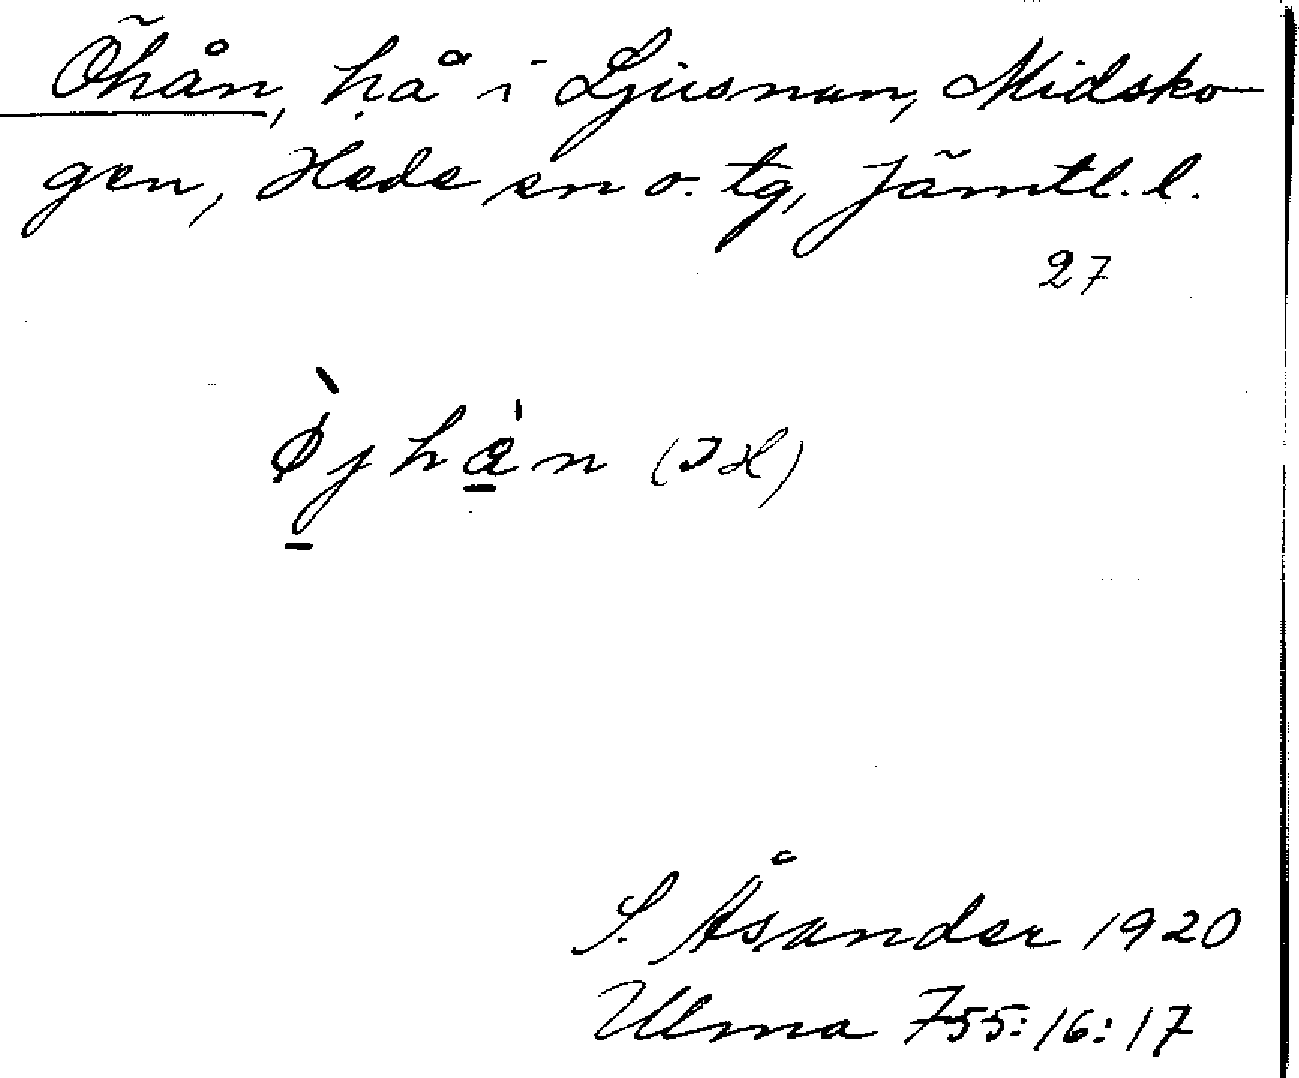 Öhån, hå i Ljusnan, Midsko
gen, Hede sn o. tg, Jämtl. l.
27
Øyhån (IH)
S. Åsander 1920
Ulma 755:16:17